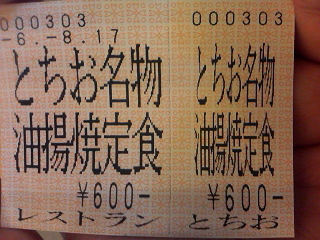 000303 000303
-6.-8.17
とちお名物 とちお名物
油揚焼定食 油揚焼定食
¥600- ¥600-
レストラン とちお